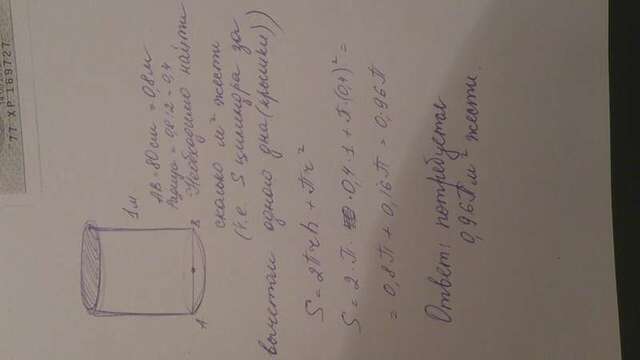 77 ХР 169727
1м
A
B
AB = 80 см = 0,8м
= 0,8 : 2 = 0,4
Необходимо найти
сколько м² жести
(т.е. S цилиндра за
вычетом одного дна (крышки))
S = 2πrh + πr²
S = 2 · π · 0,4 · 1 + π · (0,4)² =
= 0,8π + 0,16π = 0,96π
Ответ: потребуется
0,96π м² жести.